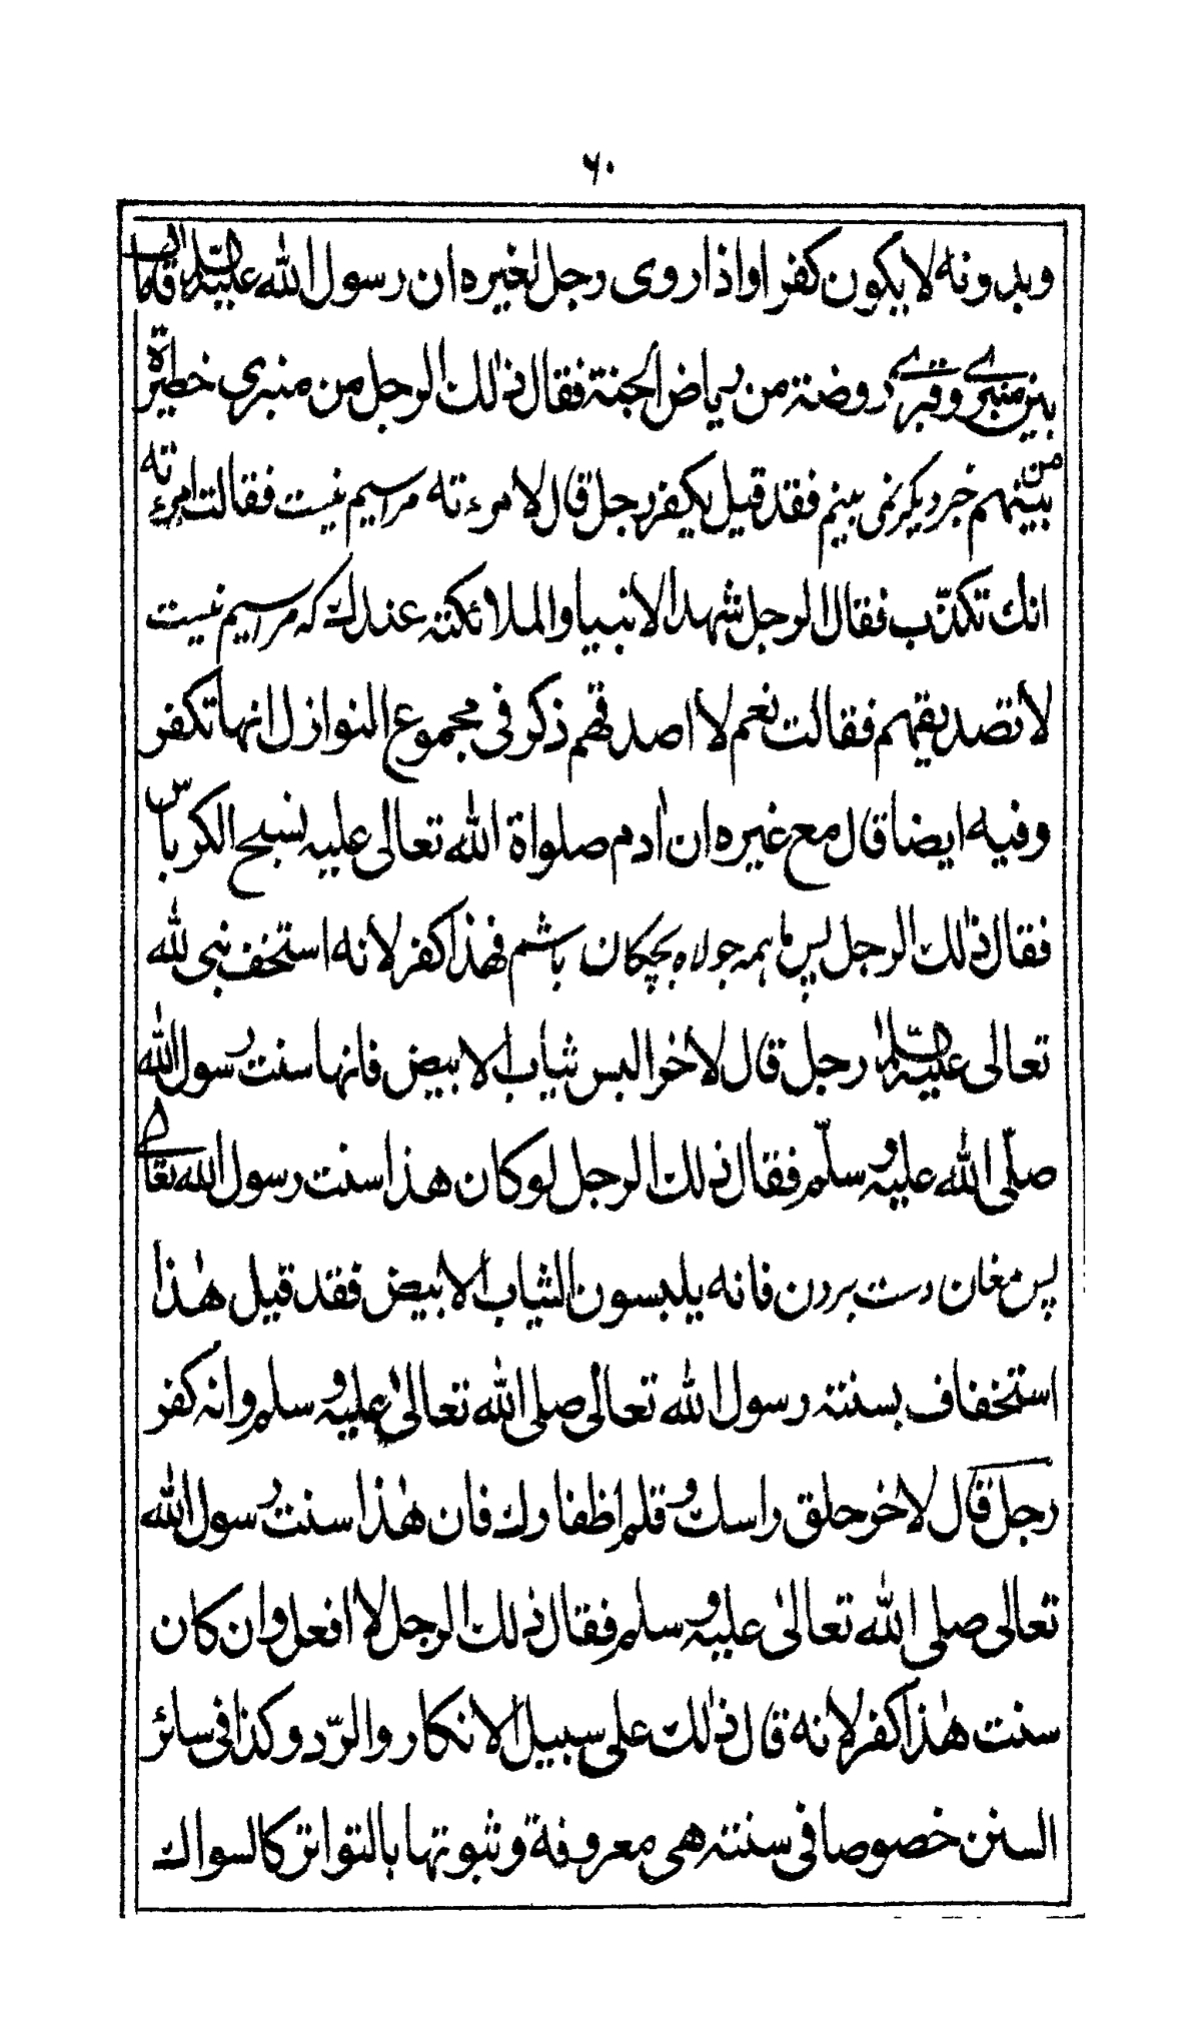 ٦٠
وبدونه لا يكون كفرا واذا روى رجل لغيره ان رسول الله عليه السلام قال
بين منبرى وقبرى روضة من رياض الجنة فقال ذٰلك الرجل من منبرى خطيرة
من بينهم خرد يكر نمى بينم فقد قيل يكفر رجل قال لامرءته مراسيم نيست فقالت امرءته
انك تكذّب فقال الرجل شهد الانبيا والملائكته عندك كه مراسيم نيست
لا تصديقهم فقالت نعم لا اصدقهم ذكر فى مجموع النوازل انها تكفر
وفيه ايضا قال مع غيره ان اٰدم صلواة الله تعالى عليه نسبح الكرباس
فقال ذٰلك الرجل پس ما همه جولاه بچكان باشم فهذا كفر لانه استخف نبى لله
تعالى عليه السّلام رجل قال لاخر البس ثياب الابيض فانها سنت رسول الله
صلّى الله عليه وسلّم فقال ذلك الرجل لو كان هذا سنت رسول الله تعالى
پس مغان دست بردن فانه يلبسون الثياب الابيض فقد قيل هٰذا
استخفاف بسنته رسول الله تعالى صلى الله تعالىٰ عليه وسلم وانه كفر
رجل قال لاخر حلق راسك و قلم اظفارك فان هٰذا سنت رسول الله
تعالى صلى الله تعالىٰ عليه وسلم فقال ذلك الرجل لا افعل وان كان
سنت هٰذا كفر لانه قال ذٰلك على سبيل الانكار والرّد وكذا فى سائر
السنن خصوصا فى سنته هى معروفة وثبوتها بالتواتر كالسواك